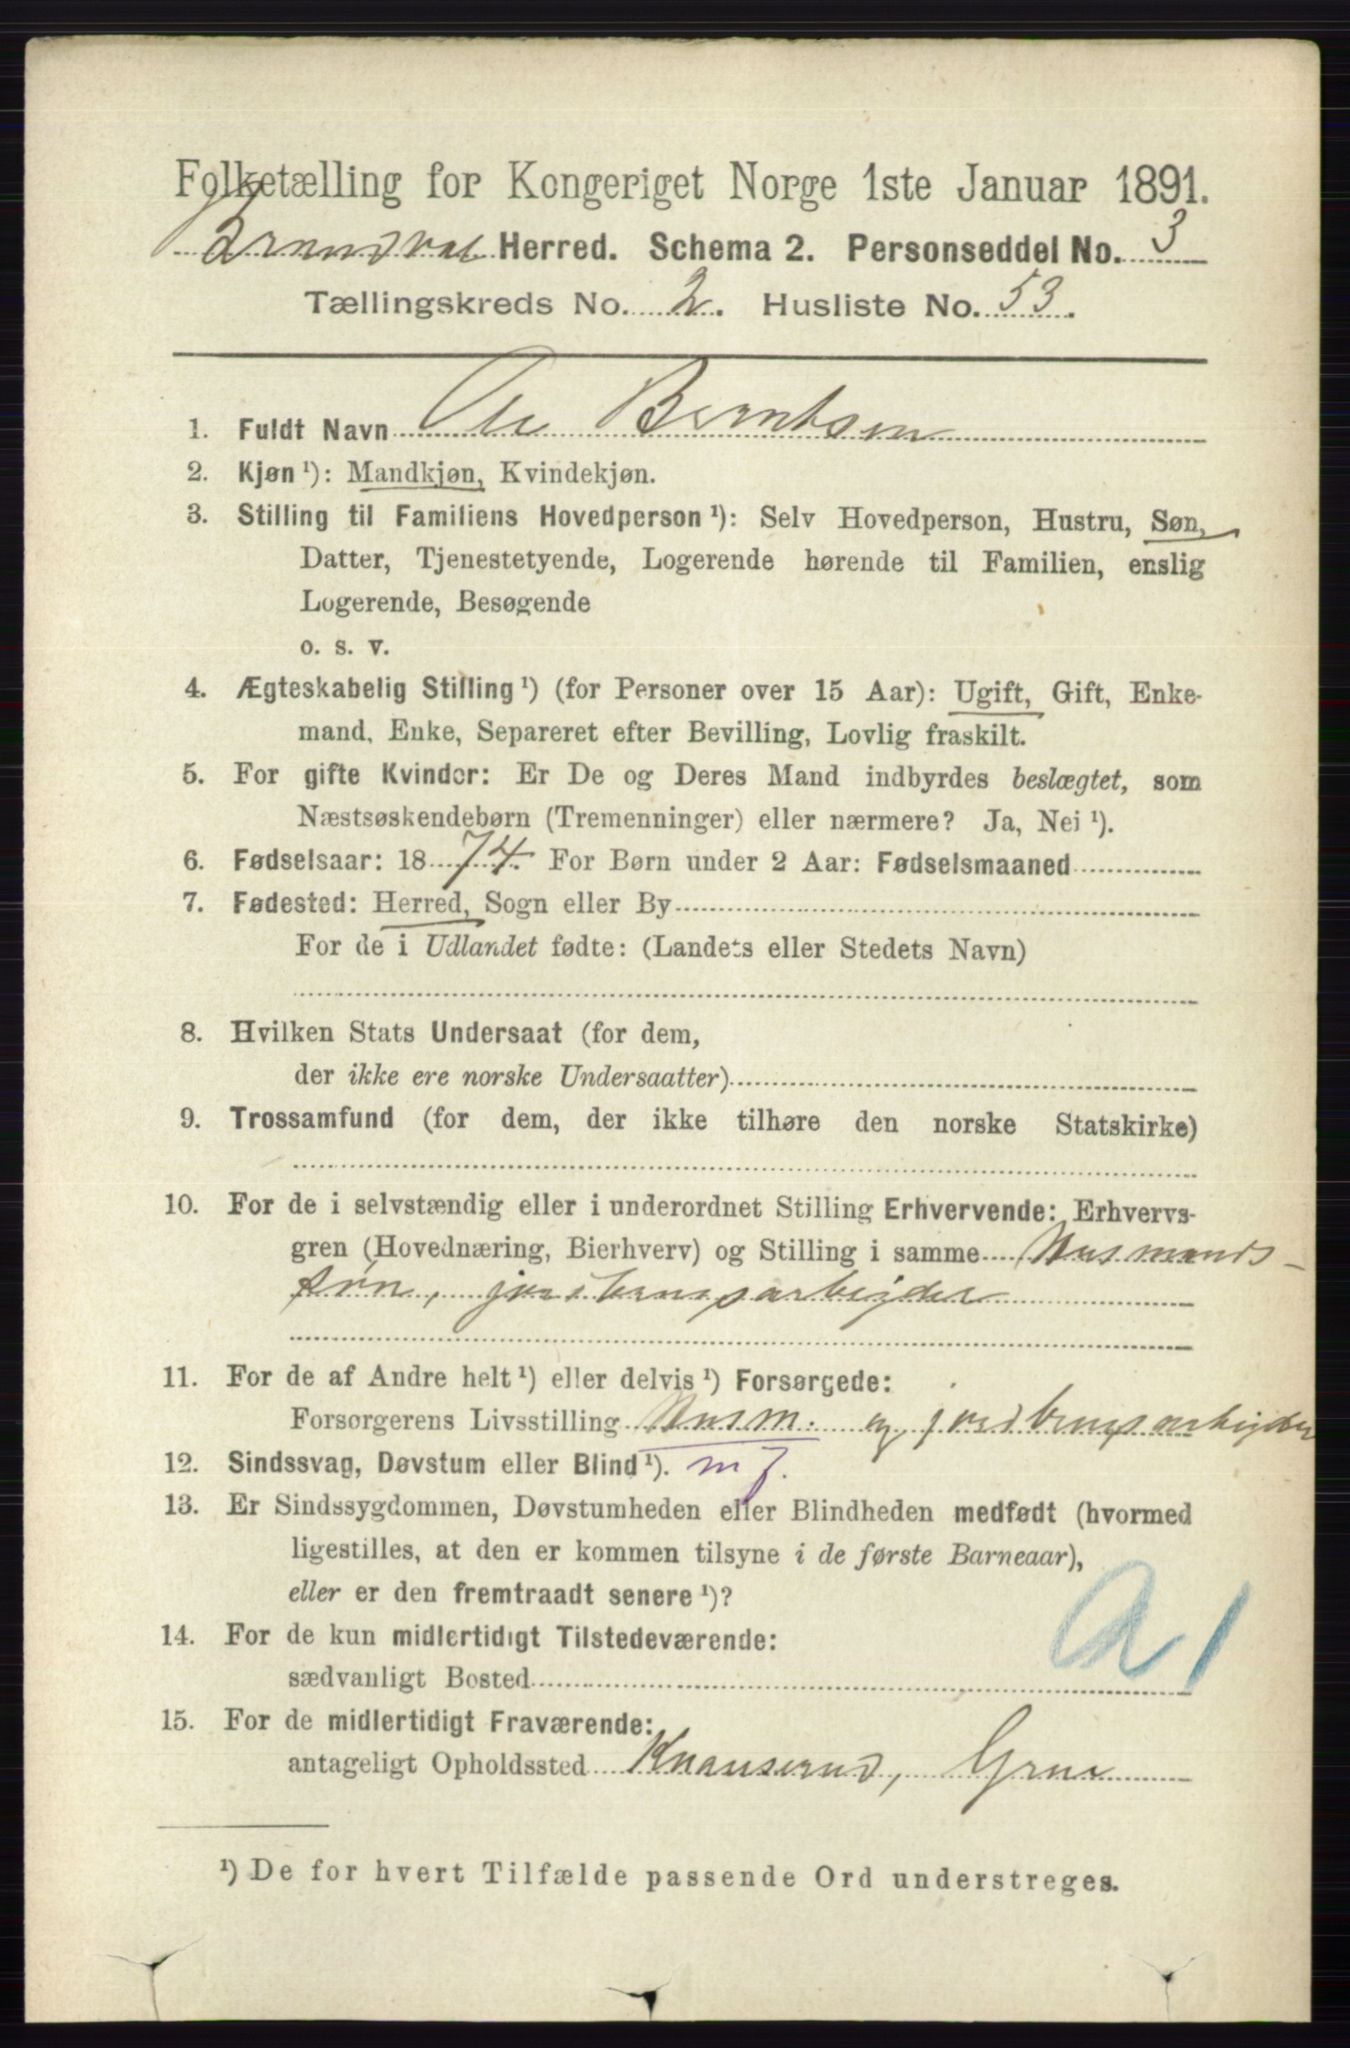 Folketælling for Kongeriget Norge 1ste Januar 1891.
Brandval Herred. Schema 2. Personseddel No. 3
Tællingskreds No. 2. Husliste No. 53.
1. Fuldt Navn Ole Berntsen
2. Kjøn ¹): Mandkjøn, Kvindekjøn.
3. Stilling til Familiens Hovedperson ¹): Selv Hovedperson, Hustru, Søn,
Datter, Tjenestetyende, Logerende hørende til Familien, enslig
Logerende, Besøgende
o. s. v.
4. Ægteskabelig Stilling ¹) (for Personer over 15 Aar): Ugift, Gift, Enke-
mand, Enke, Separeret efter Bevilling, Lovlig fraskilt.
5. For gifte Kvinder: Er De og Deres Mand indbyrdes beslægtet, som
Næstsøskendebørn (Tremenninger) eller nærmere? Ja, Nei ¹).
6. Fødselsaar: 1874. For Børn under 2 Aar: Fødselsmaaned
7. Fødested: Herred, Sogn eller By
For de i Udlandet fødte: (Landets eller Stedets Navn)
8. Hvilken Stats Undersaat (for dem,
der ikke ere norske Undersaatter)
9. Trossamfund (for dem, der ikke tilhøre den norske Statskirke)
10. For de i selvstændig eller i underordnet Stilling Erhvervende: Erhvervs-
gren (Hovednæring, Bierhverv) og Stilling i samme Husmands-
søn, jordbrugsarbejder
11. For de af Andre helt ¹) eller delvis ¹) Forsørgede:
Forsørgerens Livsstilling Husm. og jordbrugsarbejder
12. Sindssvag, Døvstum eller Blind ¹). m f.
13. Er Sindssygdommen, Døvstumheden eller Blindheden medfødt (hvormed
ligestilles, at den er kommen tilsyne i de første Barneaar),
eller er den fremtraadt senere ¹)?
14. For de kun midlertidigt Tilstedeværende:
sædvanligt Bosted
a 1
15. For de midlertidigt Fraværende:
antageligt Opholdssted Knauserud, Grue
¹) De for hvert Tilfælde passende Ord understreges.